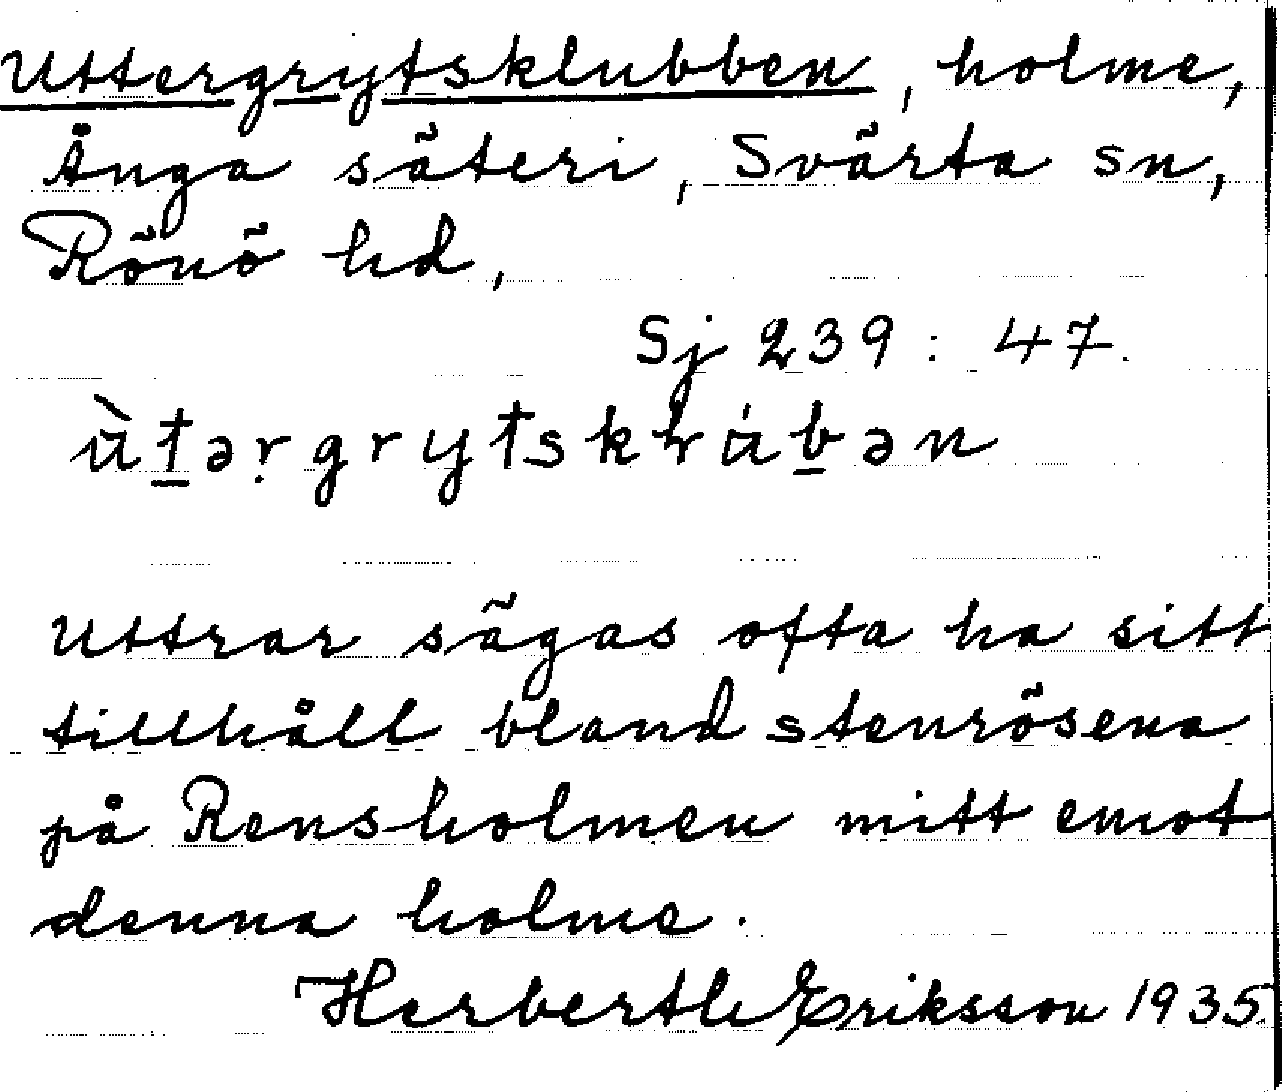 Uttergrytsklubben, holme,
Änga säteri, Svärta sn,
Rönö hd,
Sj 239 : 47.
ùt̲əṛgrytskɽúb̲ən
Uttrar sägas ofta ha sitt
tillhåll bland stenrösena
på Rensholmen mitt emot
denna holme.
Eriksson 1935.